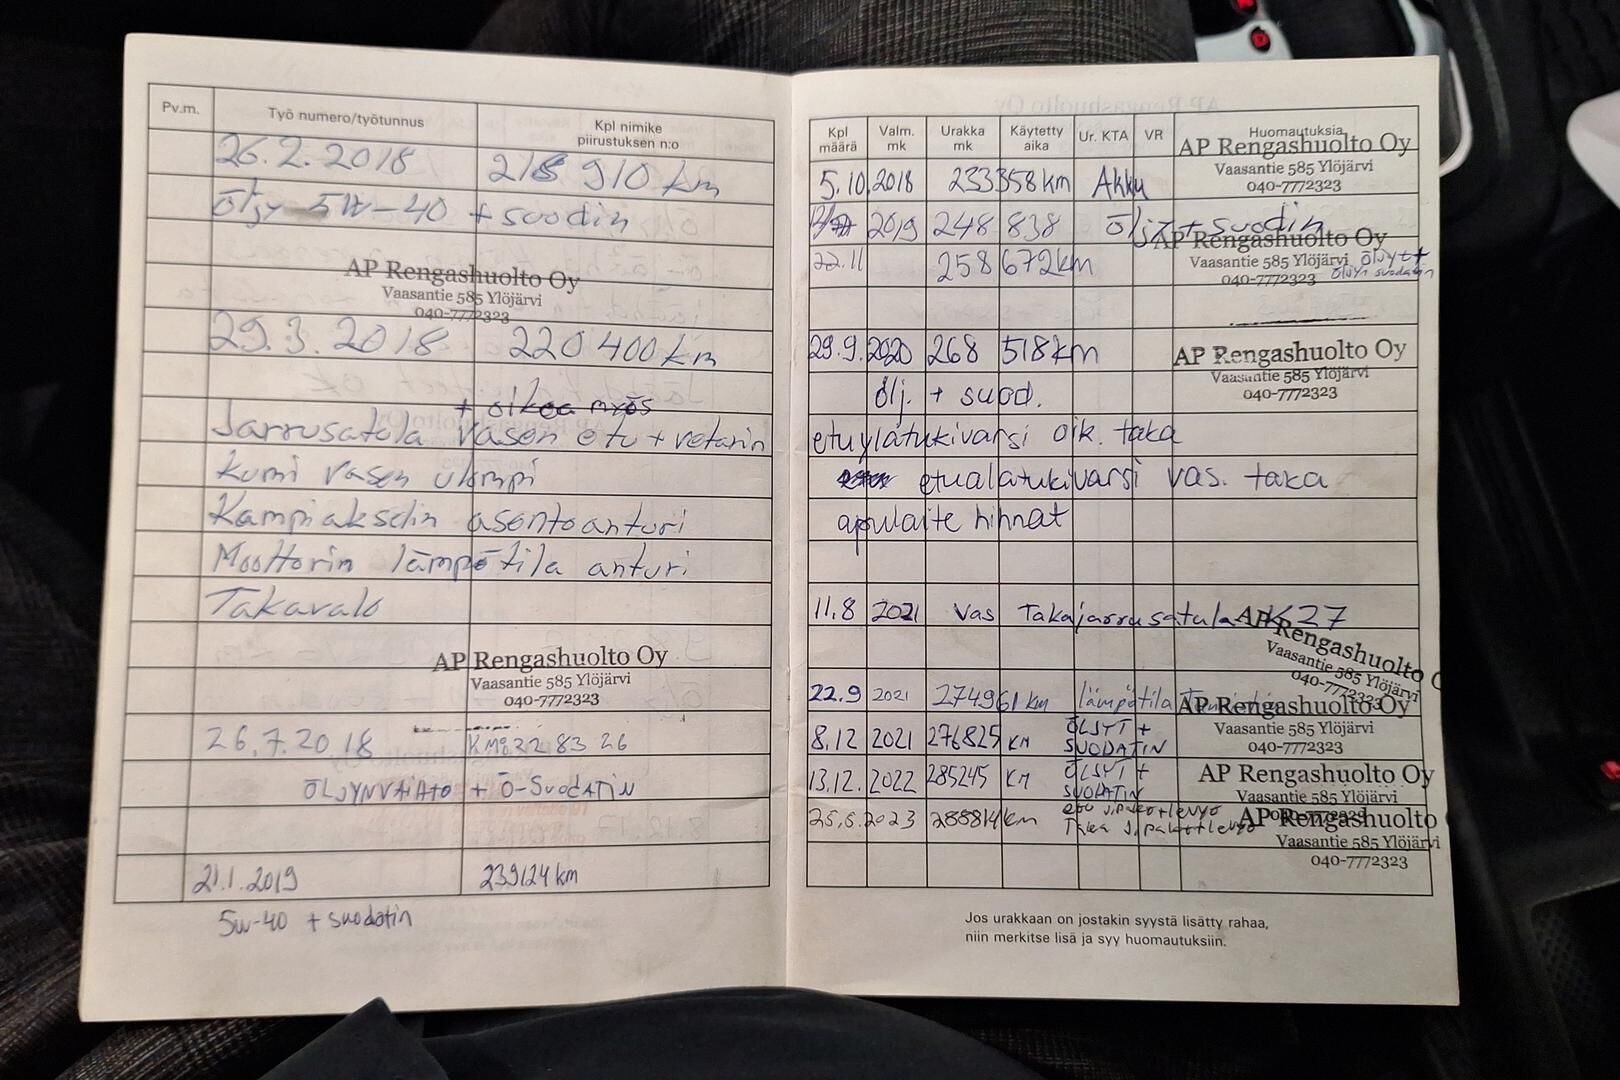 Pv.m. Työ numero/työtunnus Kpl nimike piirustuksen n:o
26.2.2018 218 910 km
öljy 5W-40 + suodin
AP Rengashuolto Oy
Vaasantie 585 Ylöjärvi
040-7772323
29.3.2018 220 400 km
+ oikea myös
Jarrusatula vasen etu + vetarin
kumi vasen ulompi
Kampiakselin asentoanturi
Moottorin lämpötila anturi
Takavalo
AP Rengashuolto Oy
Vaasantie 585 Ylöjärvi
040-7772323
26.7.2018 KM: 22 83 26
ÖLJYNVAIHTO + Ö-SuodATiN
21.1.2019 239124 km
5w-40 + suodatin
Kpl määrä Valm. mk Urakka mk Käytetty aika Ur. KTA VR Huomautuksia
AP Rengashuolto Oy
Vaasantie 585 Ylöjärvi
040-7772323
5.10.2018 233358km Akku
2019 248 838 öljy + suodin
AP Rengashuolto Oy
Vaasantie 585 Ylöjärvi
040-7772323
22.11 258 672km öljyt + öljyn suodatin
29.9.2020 268 518km
AP Rengashuolto Oy
Vaasantie 585 Ylöjärvi
040-7772323
ölj. + suod.
etuylätukivarsi oik. taka
etualatukivarsi vas. taka
apulaite hihnat
11.8 2021 vas Takajarrusatula K27
AP Rengashuolto Oy
Vaasantie 585 Ylöjärvi
040-7772323
22.9 2021 274961 km lämpötila
AP Rengashuolto Oy
Vaasantie 585 Ylöjärvi
040-7772323
8.12 2021 276825 KM ÖLJYT + SUODATIN
13.12.2022 285245 KM ÖLJYT + SUODATIN
AP Rengashuolto Oy
Vaasantie 585 Ylöjärvi
040-7772323
2023 288814km etu j.palat+levyt
Taka j.palat+levyt
AP Rengashuolto
Vaasantie 585 Ylöjärvi
040-7772323
Jos urakkaan on jostakin syystä lisätty rahaa,
niin merkitse lisä ja syy huomautuksiin.